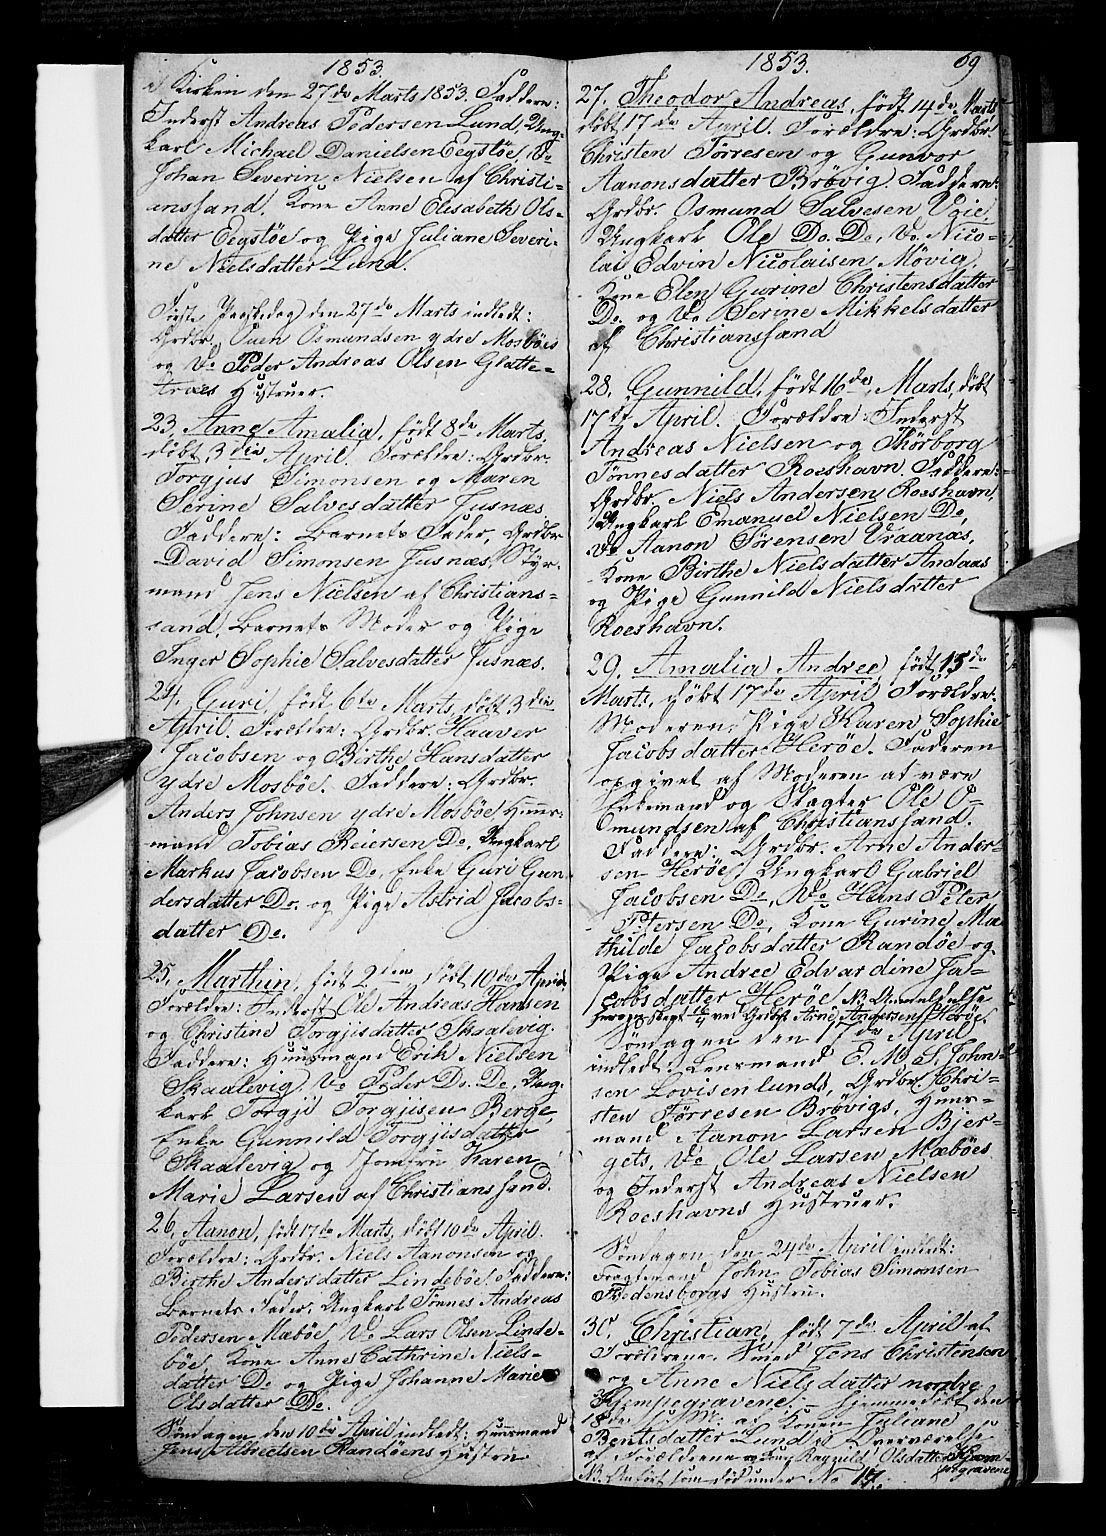 1853.
i Kirken den 27de Marts 1853. Faddere:
Inderst Andreas Pedersen Lund, Ung-
karl Michael Danielsen Eegstøe, Do
Johan Severin Nielsen af Christi-
anssand. Kone Anne Elisabeth Ols-
datter Eegstøe og Pige Juliane Severi-
ne Nielsdatter Lund.
Første Paaskedag den 27de Marts indledt:
Grdbr. Ouen Osmundsen ydre Mosbøes
og Do Peder Andreas Olsen Glatte-
træes Hustruer.
23. Anne Amalia, født 8de Marts,
døbt 3die April. Forældre: Grdbr.
Torgjus Simonsen og Maren
Serine Salvesdatter Jusnæs.
Faddere: Barnets Fader, Grdbr
David Simonsen Jusnæs, Styr-
mand Jens Nielsen af Christians-
sand, Barnets Moder og Pige
Inger Sophie Salvesdatter Jusnæs.
24. Guri, født 6te Marts, døbt 3die
April. Forældre: Grdbr. Haaver
Jacobsen og Birthe Hansdatter
ydre Mosbøe. Faddere: Grdbr.
Anders Johnsen ydre Mosbøe, Huus-
mand Tobias Reiersen Do, Ungkarl
Markus Jacobsen Do, Enke Guri Gun-
dersdatter Do. og Pige Astrid Jacobs-
datter Do.
25. Marthin, født 2den, døbt 10de April,
Forældre: Inderst Ole Andreas Hansen
og Christine Torgjisdatter Skaalevig.
Faddere: Huusmand Erik Nielsen
Skaalevig, Do Peder Do. Do, Ung-
karl Torgji Torgjisen Berge,
Enke Gunnild Torgjisdatter
Skaalevig og Jomfru Karen
Marie Larsen af Christianssand.
26. Aanon, født 17de Marts, døbt 10de April.
Forældre: Grdbr. Niels Aanonsen og
Birthe Andersdatter Lindebøe. Faddere:
Barnets Fader, Ungkarl Tønnes Andreas
Pedersen Mæbøe, Do Lars Olsen Linde-
bøe, Kone Anne Cathrine Niels-
datter Do og Pige Johanne Marie
Olsdatter Do.
Søndagen den 10de April indledt: Huusmand
Jens Albretsen Randøens Hustru
1853. 69
27. Theodor Andreas, født 14de Marts,
døbt 17de April. Forældre: Grdbr.
Christen Tørresen og Gunvor
Aanonsdatter Brøvig. Faddere:
Grdbr. Osmund Salvesen Ugie,
Ungkarl Ole Do. Do, Do. Nico-
lai Edvin Nicolaisen Møvig,
Kone Elen Gurine Christensdatter
Do. og Do Serine Mikkelsdatter
af Christianssand
28. Gunnild, født 16de Marts, døbt
17de April. Forældre: Inderst
Andreas Nielsen og Thorborg
Tønnesdatter Roeshavn. Faddere:
Grdbr. Niels Andersen Roeshavn,
Ungkarl Emanuel Nielsen Do,
Do Aanon Sørensen Vraanæs,
Kone Birthe Nielsdatter Andaas
og Pige Gunnild Nielsdatter
Roeshavn.
29. Amalia Andree, født 15de
Marts, døbt 17de April. Forældre:
Moderen, Pige Karen Sophie
Jacobsdatter Herøe. Faderen
opgivet af Moderen at være
Enkemand og Slagter Ole O-
smundsen af Christianssand.
Faddere: Grdbr. Arne Ander-
sen Herøe, Ungkarl Gabriel
Jacobsen Do, Do Hans Peter
Petersen Do, Kone Gurine Ma-
thilde Jacobsdatter Randøe og
Pige Andree Edvardine Ja-
cobsdatter Herøe. NB Anmeldelse
herom skeet ved Grdbr Arne Andersen Herøe.
Søndagen den 17de April
indledt: Lensmand E. M. S. John-
sen Lovisenlunds, Grdbr. Chri-
sten Tørresen Brøvigs, Huus-
mand Aanon Larsen Bjer-
gets, Do Ole Larsen Mæbøes
og Inderst Andreas Nielsen
Roeshavns Hustruer.
Søndagen den 24de April indledt:
Fragtemand John Tobias Simonsen
Fredensborgs Hustru.
30. Christian, født 7de April af
Forældrene, Smed Jens Christensen
og Anne Nielsdatter nordre
Kjempegravene. – hjemmedøbt den
18de af Konen Juliane
Bentsdatter Lund i Overværelse
af Forældrene og Ragnild Olsdatter Kjem-
pegravene
NB Anført som død under No 17.